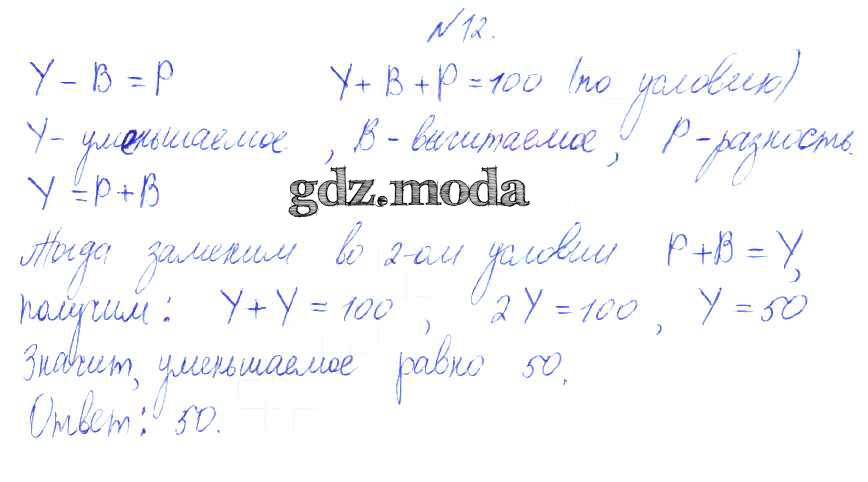 №12.
У - В = Р У + В + Р = 100 (по условию)
У - уменьшаемое, В - вычитаемое, Р - разность.
У = Р + В
gdz.moda
Тогда заменим во 2-ом условии Р + В = У,
получим: У + У = 100, 2У = 100, У = 50
Значит, уменьшаемое равно 50.
Ответ: 50.